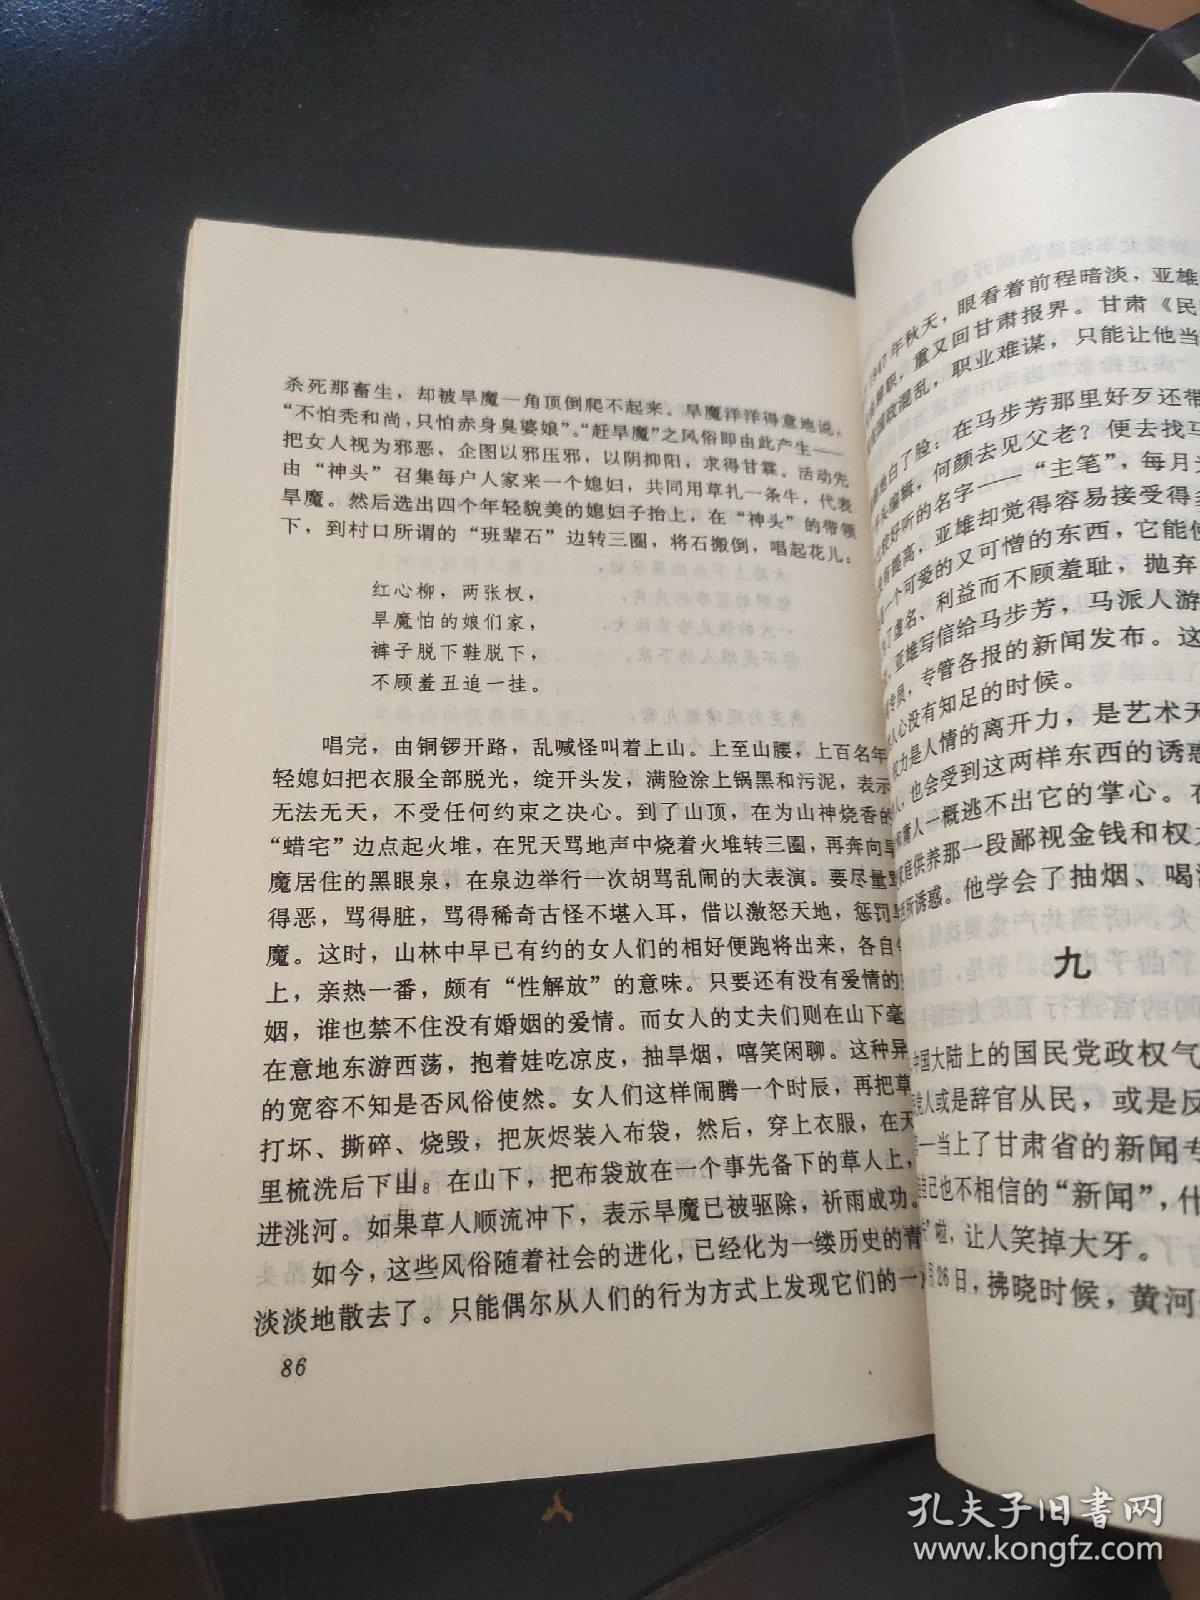 杀死那畜生，却被旱魔一角顶倒爬不起来。旱魔洋洋得意地说，
“不怕秃和尚，只怕赤身臭婆娘”。“赶旱魔”之风俗即由此产生——
把女人视为邪恶，企图以邪压邪，以阴抑阳，求得甘霖。活动先
由“神头”召集每户人家来一个媳妇，共同用草扎一条牛，代表
旱魔。然后选出四个年轻貌美的媳妇子抬上，在“神头”的带领
下，到村口所谓的“班辈石”边转三圈，将石搬倒，唱起花儿：
红心柳，两张杈，
旱魔怕的娘们家，
裤子脱下鞋脱下，
不顾羞丑追一挂。
唱完，由铜锣开路，乱喊怪叫着上山。上至山腰，上百名年
轻媳妇把衣服全部脱光，绽开头发，满脸涂上锅黑和污泥，表示
无法无天，不受任何约束之决心。到了山顶，在为山神烧香的
“蜡宅”边点起火堆，在咒天骂地声中烧着火堆转三圈，再奔向旱
魔居住的黑眼泉，在泉边举行一次胡骂乱闹的大表演。要尽量骂
得恶，骂得脏，骂得稀奇古怪不堪入耳，借以激怒天地，惩罚旱
魔。这时，山林中早已有约的女人们的相好便跑将出来，各自
上，亲热一番，颇有“性解放”的意味。只要还有没有爱情的
姻，谁也禁不住没有婚姻的爱情。而女人的丈夫们则在山下毫
在意地东游西荡，抱着娃吃凉皮，抽旱烟，嘻笑闲聊。这种异
的宽容不知是否风俗使然。女人们这样闹腾一个时辰，再把草
打坏、撕碎、烧毁，把灰烬装入布袋，然后，穿上衣服，在天
里梳洗后下山。在山下，把布袋放在一个事先备下的草人上，
进洮河。如果草人顺流冲下，表示旱魔已被驱除，祈雨成功。
如今，这些风俗随着社会的进化，已经化为一缕历史的青
淡淡地散去了。只能偶尔从人们的行为方式上发现它们的一
86
年秋天，眼看着前程暗淡，亚雄
职，重又回甘肃报界。甘肃《民
政混乱，职业难谋，只能让他当
地白了脸：在马步芳那里好歹还带
头编辑，何颜去见父老？便去找马
较好听的名字——“主笔”，每月
有提高，亚雄却觉得容易接受得多
一个可爱的又可憎的东西，它能使
了虚名、利益而不顾羞耻，抛弃
，亚雄写信给马步芳，马派人游
专员，专管各报的新闻发布。这
人心没有知足的时候。
权力是人情的离开力，是艺术天
，也会受到这两样东西的诱惑
庸人一概逃不出它的掌心。在
庭供养那一段鄙视金钱和权
所诱惑。他学会了抽烟、喝
九
中国大陆上的国民党政权气
党人或是辞官从民，或是反
一当上了甘肃省的新闻专
自己也不相信的“新闻”，什
啦，让人笑掉大牙。
月26日，拂晓时候，黄河
孔夫子旧书网
www.kongfz.com